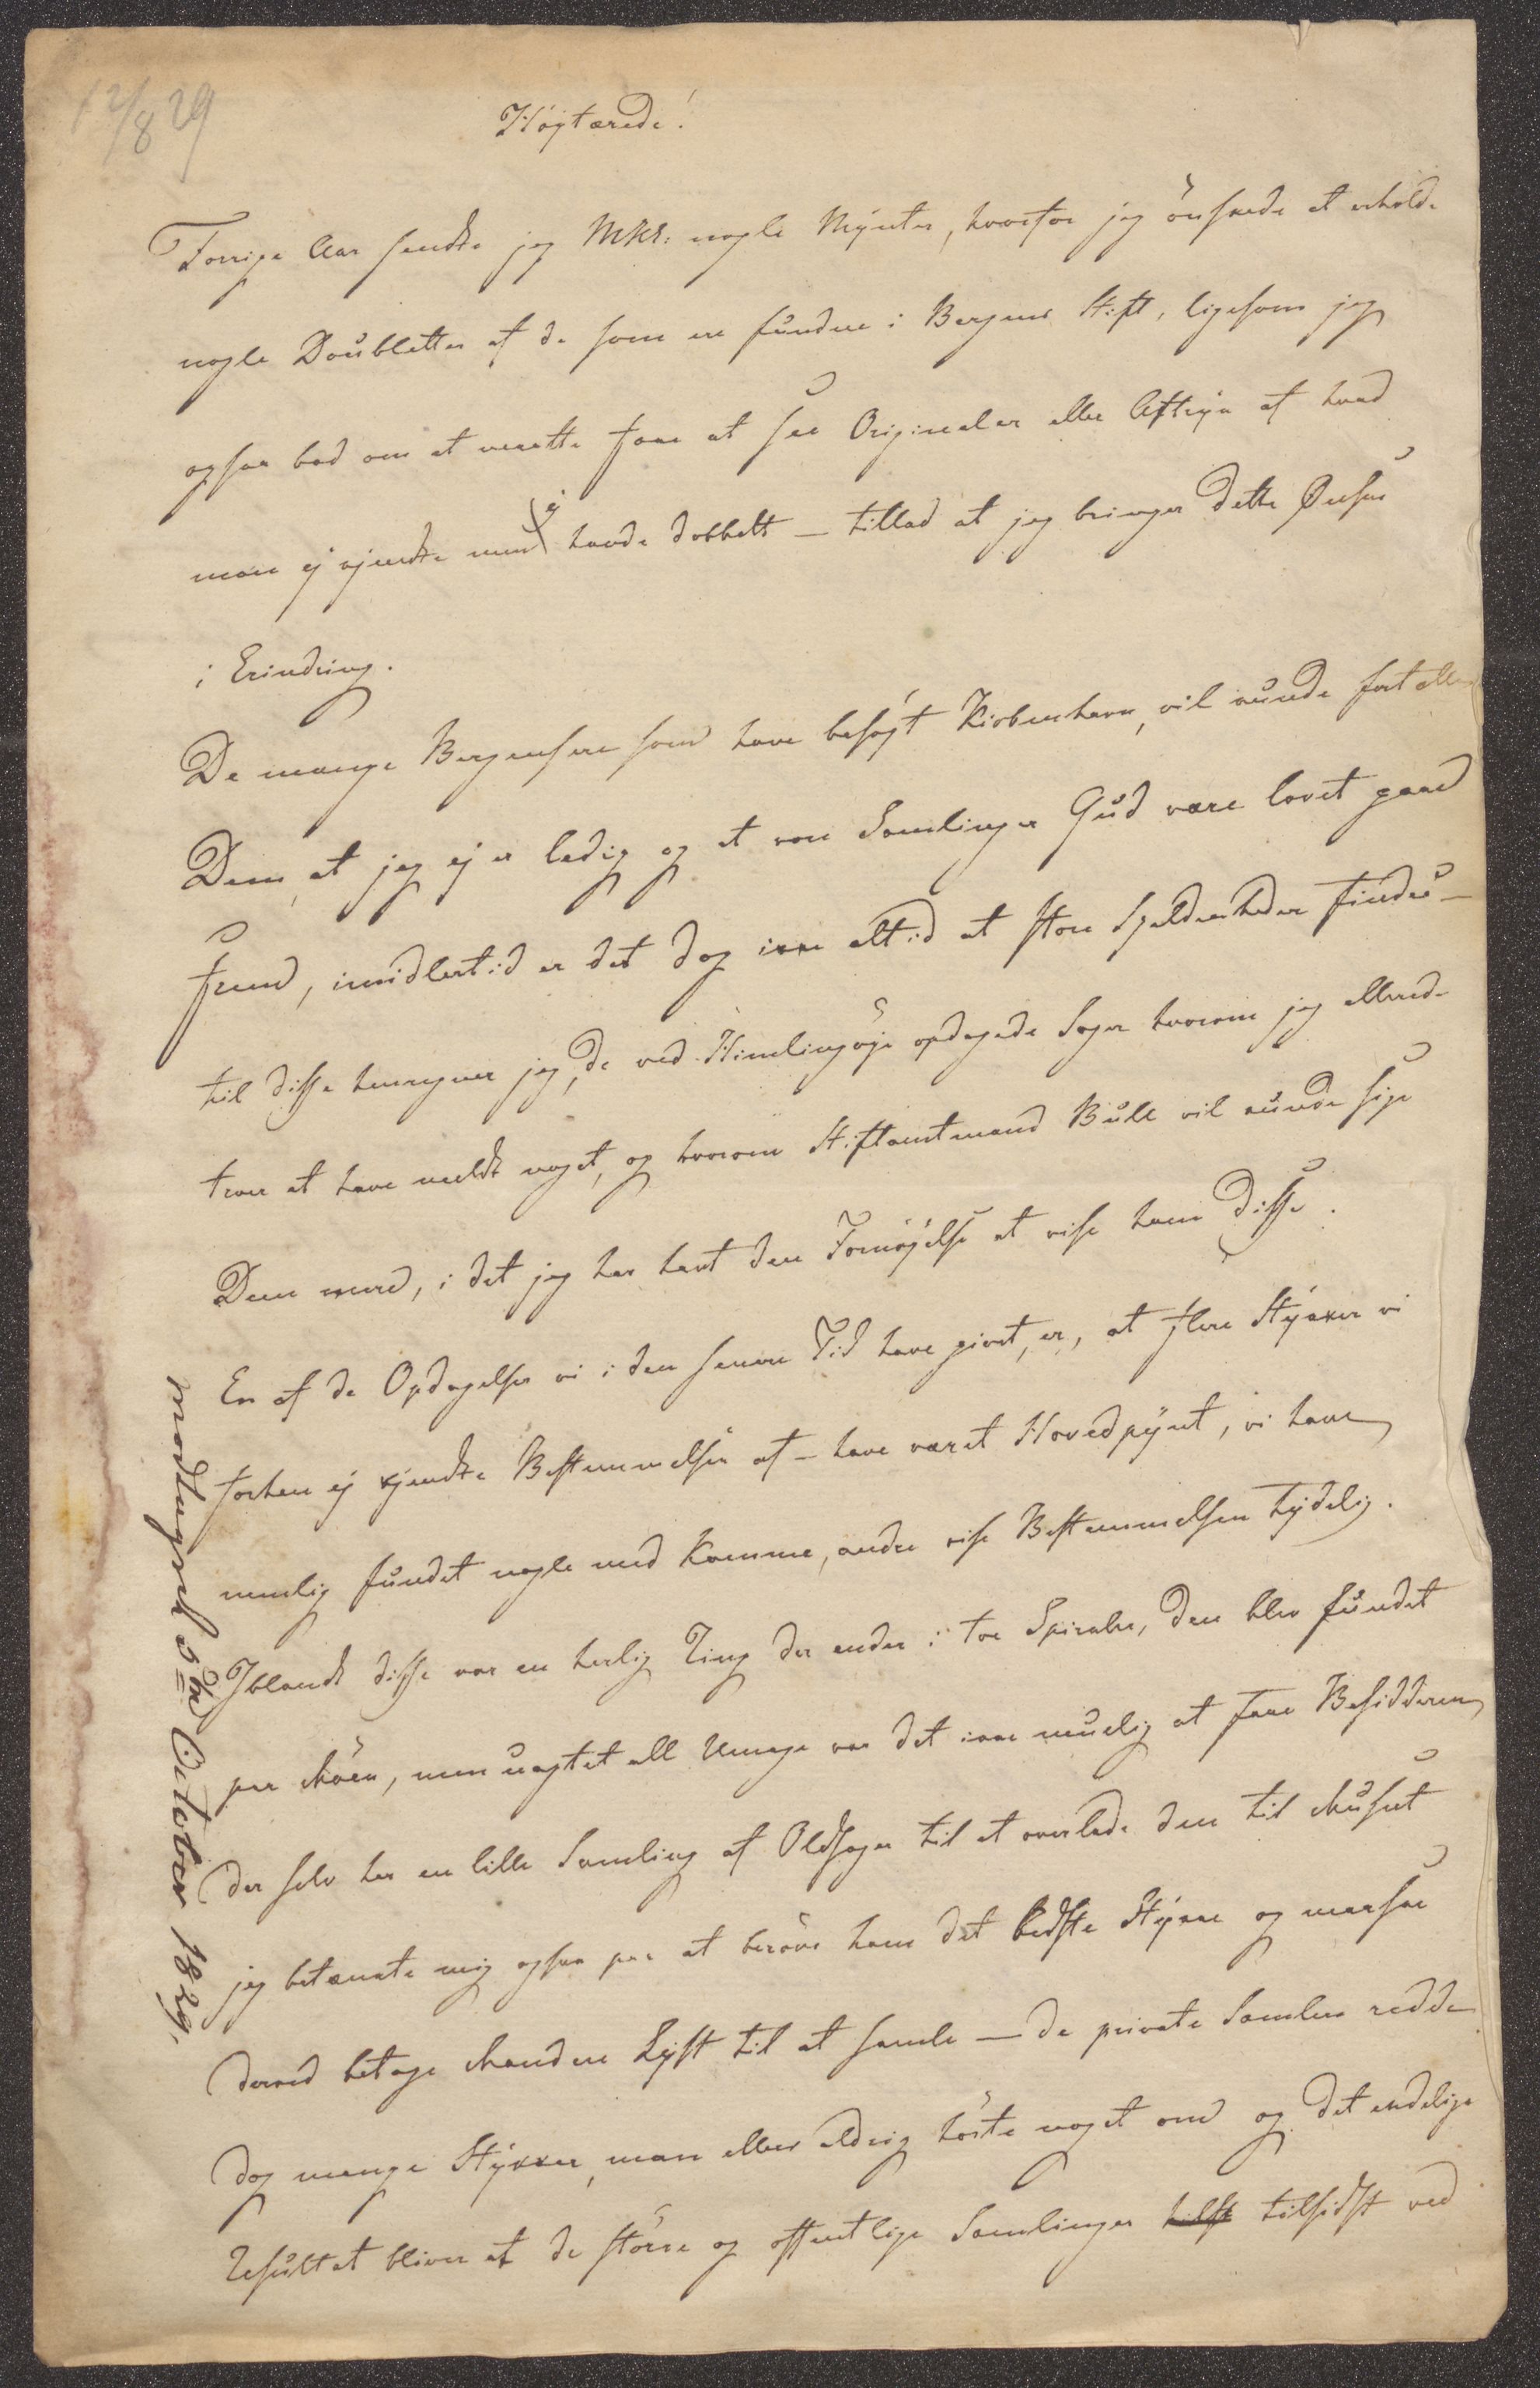 12/8 29
Höytærede!
Forrige Aar sendte jeg nogle Mynter, hvorfor jeg önskede at erholde
nogle Doubletter af de som ere fundne i Bergens Stift, ligesom jeg
ogsaa bad om at maatte faae at see Originaler eller Aftryk af hvad
man ej kjendte men ej havde dobbelt – tillad at jeg bringer dette Ønske
i Erindring.
De mange Bergensere som have besøgt Kiøbenhavn, vil kunde fortælle
Dem, at jeg ej er ledig og at vore Samlinger Gud være lovet gaae
frem, imidlertid er det dog ikke altid at store Sjeldenheder findes –
til disse henregner jeg, de ved Himlingöje opdagede Sager hvorom jeg allerede
troer at have meldt noget, og hvorom Stiftamtmand Bull vil kunde sige
Dem mere, i det jeg har havt den Fornöjelse at vise ham disse.
En af de Opdagelser vi i den senere Tid have giort, er, at flere Stÿkker vi
forhen ej kjendte Bestemmelsen af – have været Hovedpÿnt, vi have
nemlig fundet nogle med Kamme, andre vise Bestemmelsen tydelig.
Iblandt disse var en herlig Ting der ender i to Spiraler, den blev fundet
paa Möen, men uagtet all Umage var det ikke muelig at faae Besidderen
der selv har en lille Samling af Oldsager til at overlade den til Museet
jeg betænkte mig ogsaa paa at beröve ham det bedste Stÿkke og maaskee
derved betage Manden Lyst til at samle – de private Samlere redde
dog mange Stÿkker, man ellers aldrig hörte noget om og det endelige
Resultat bliver at de större og offentlige Samlinger tilsidst ved
modtaget 5te October 1829.